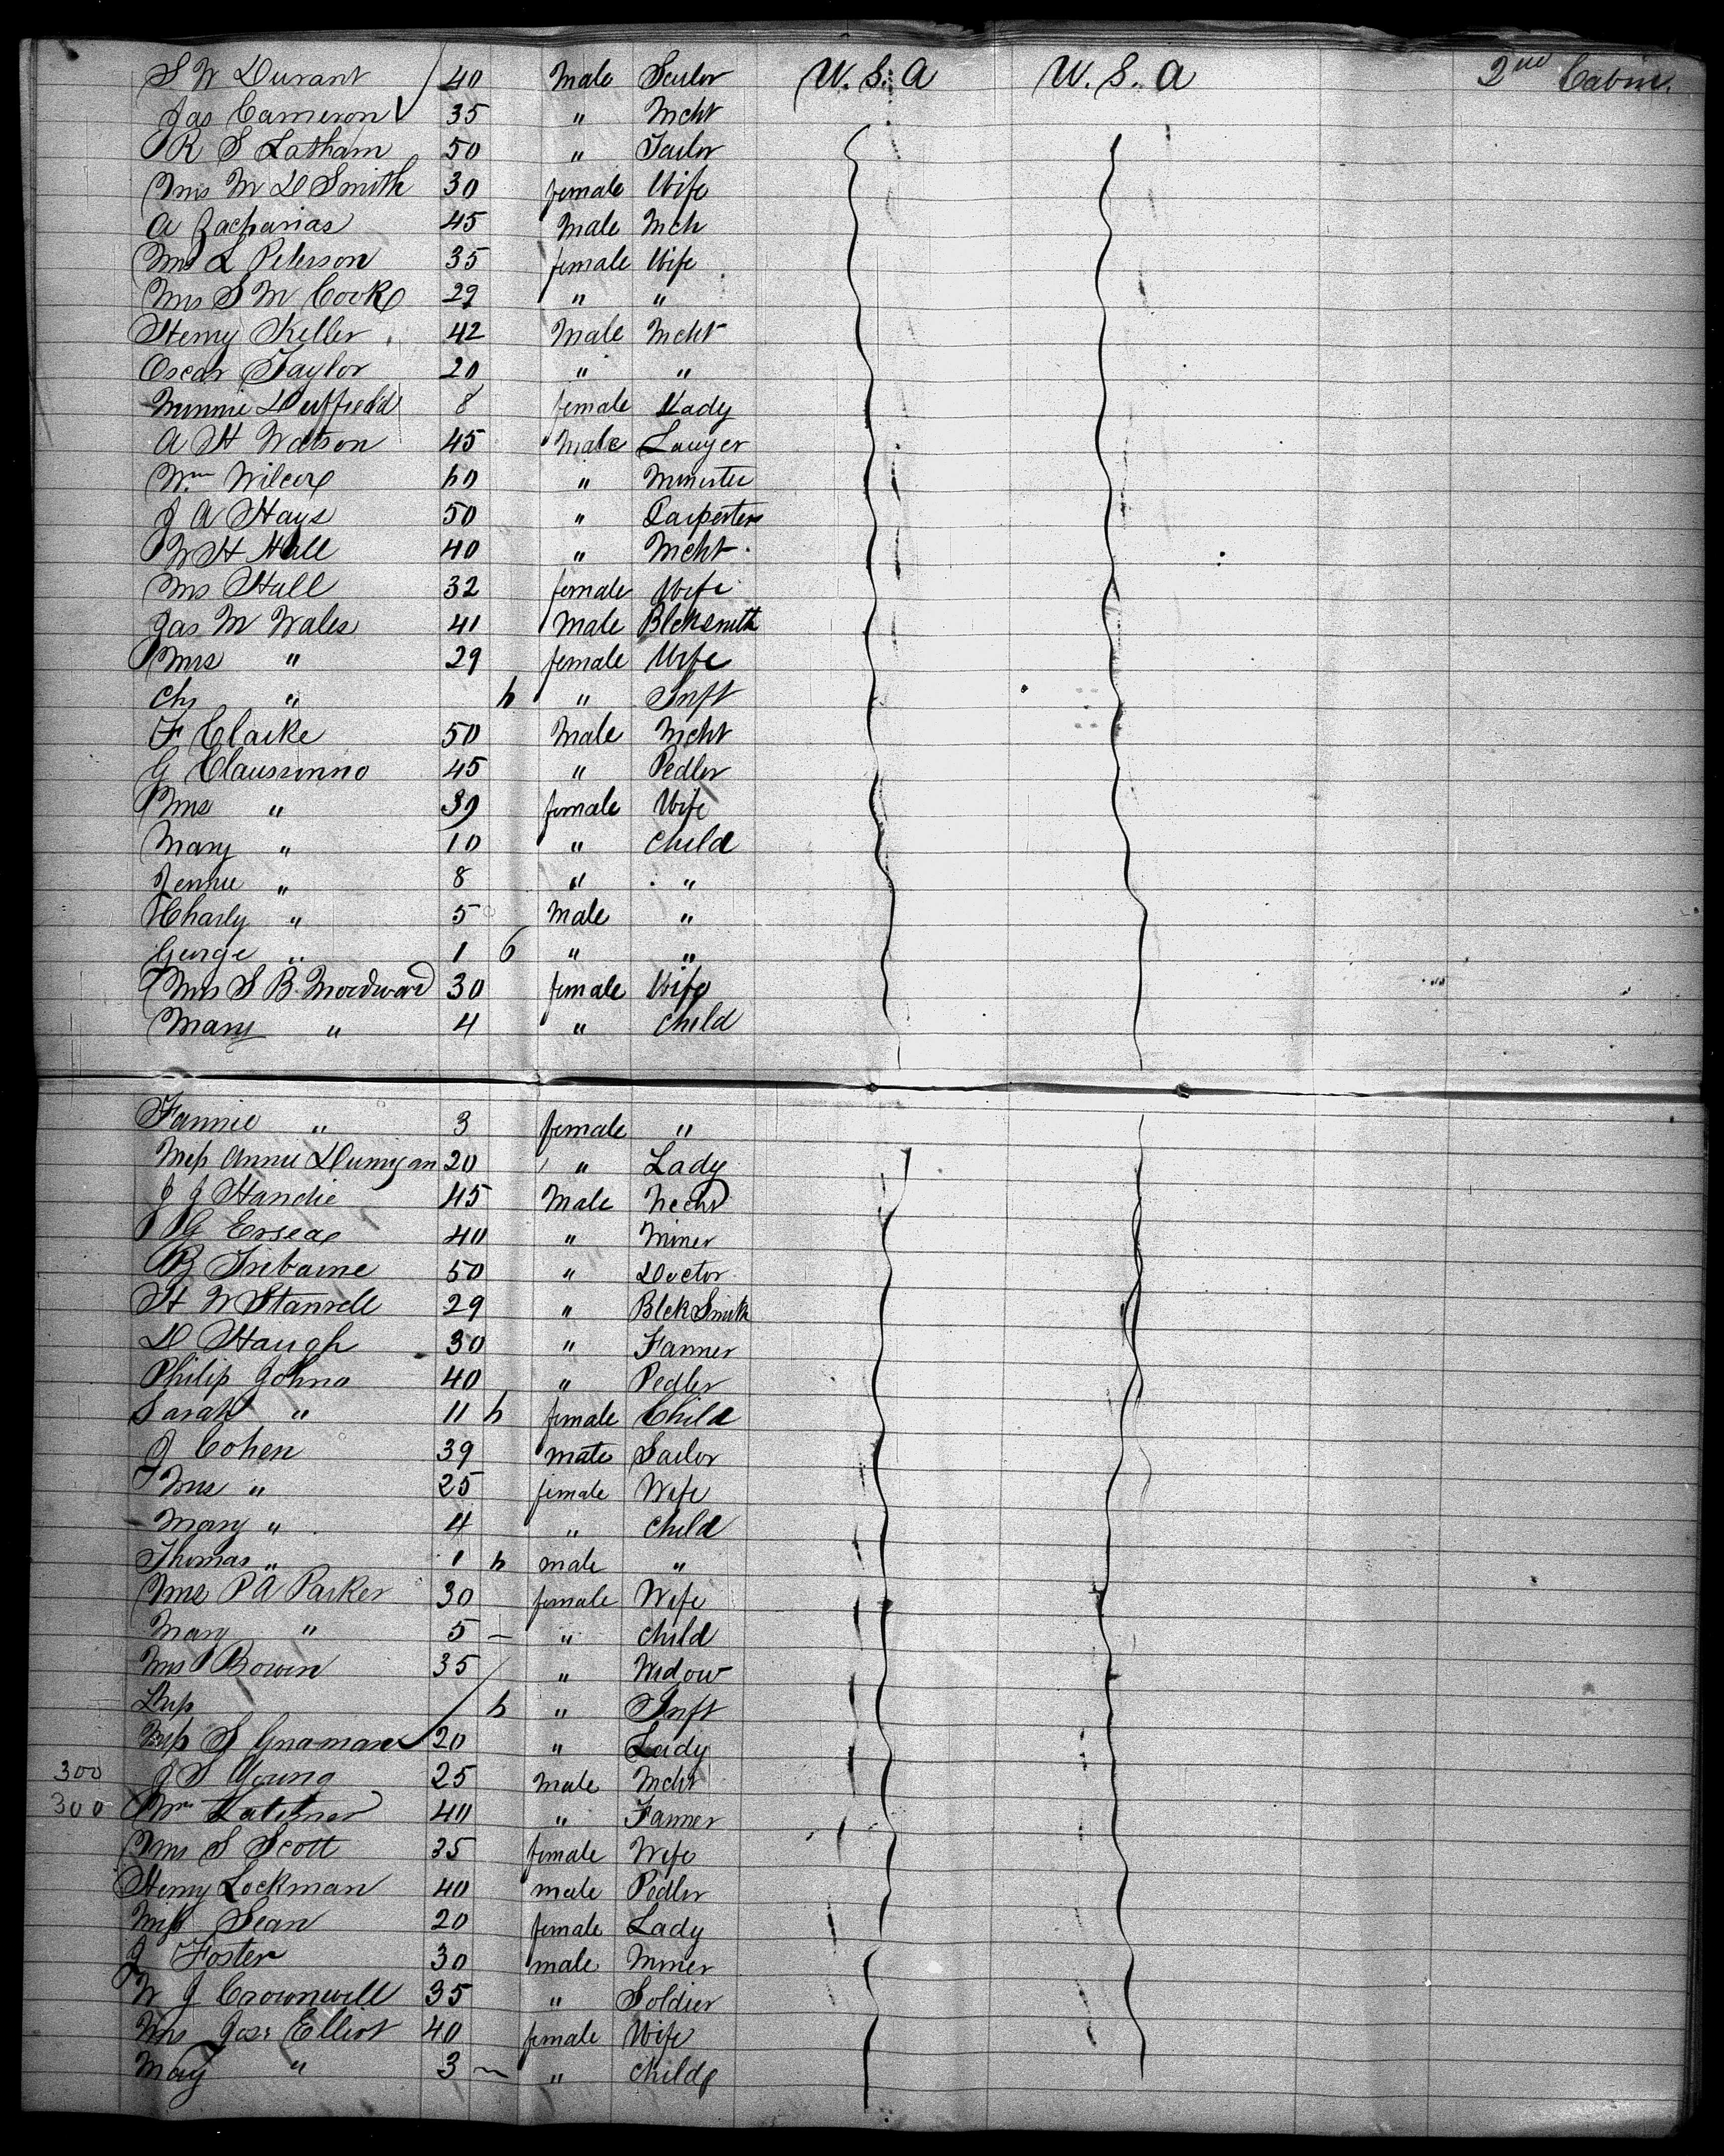 S W Durant 40 Male Sailor U. S. A U. S. A 2nd Cabin.
Jas Cameron 35 " Mcht
R S Latham 50 " Tailor
Mrs M D Smith 30 female Wife
A Zacharias 45 Male Mch
Mrs L Peterson 35 female Wife
Mrs S M Cook 29 " "
Henry Keller 42 Male Mcht
Oscar Taylor 20 " "
Minnie Duffield 8 female Lady
A H Watson 45 Male Lawyer
Wm Wilcox 60 " Minister
J A Hays 50 " Carpenter
W H Hall 40 " Mcht
Mrs Hall 32 female Wife
Jas M Wales 41 Male Blcksmith
Mrs " 29 female Wife
Chs " 6 " Inft
F Clarke 50 Male Mcht
G 45 " Pedler
Mrs " 39 female Wife
Mary " 10 " Child
Jennie " 8 " "
Charly " 5 Male "
George " 1 6 " "
Mrs S B Woodward 30 female Wife
Mary " 4 " Child
Fannie " 3 female "
Miss Annie 20 " Lady
J J Handie 45 Male
G 40 " Miner
50 " Doctor
H W 29 " Blck Smith
D Haugh 30 " Farmer
Philip Johns 40 " Pedler
Sarah " 11 6 female Child
J Cohen 39 male Sailor
Mrs " 25 female Wife
Mary " 4 " Child
Thomas " 1 6 male "
Mrs P A Parker 30 female Wife
Mary " 5 — " Child
Mrs Bowen 35 " Widow
6 " Inft
Miss S 20 " Lady
300 J S Young 25 Male Mcht
300 Wm 40 " Farmer
Mrs S Scott 35 female Wife
Henry Lockman 40 male Pedler
Miss Sean 20 female Lady
J Foster 30 male Miner
W J 35 " Soldier
Mrs Jos: Elliot 40 female Wife
May " 3 — " Child